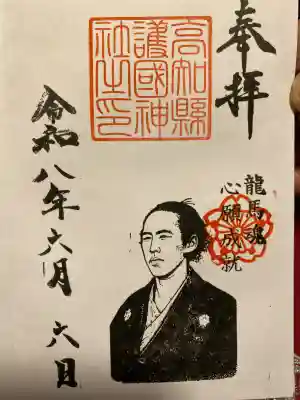 奉拝
高知縣
護國神
社之印
龍馬魂
心願成就
令和八年六月六日